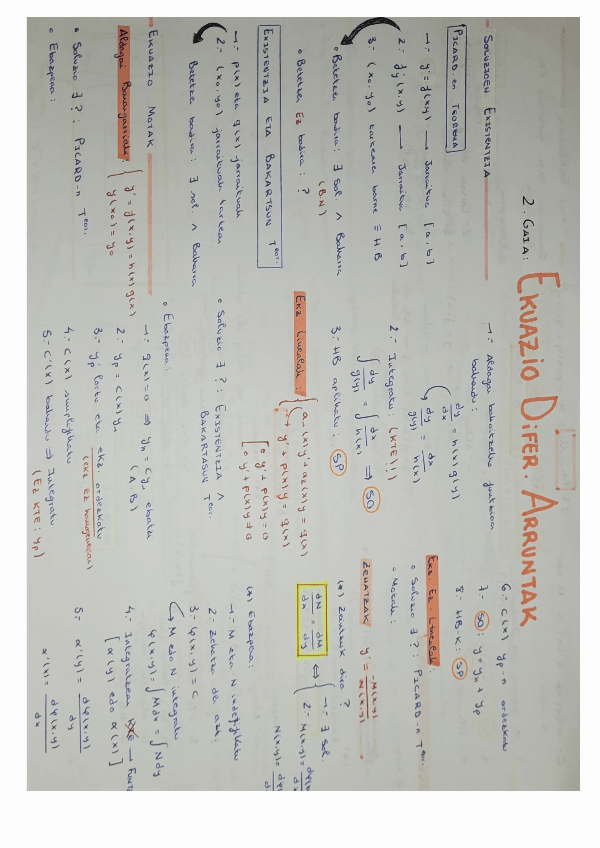 2. GAIA: EKUAZIO DIFER. ARRUNTAK
SOLUZIOEN EXISTENTZIA
PICARD-en TEOREMA
1.- y' = f(x,y) → Jarraitua [a,b]
2.- f'y(x,y) → Jarraitua [a,b]
3.- (x0,y0) tartearen barne ≡ H.B
Betetzen badira: ∃ sol ∧ Bakarra
(B.N)
Betetzen Ez badira: ?
EXISTENTZIA ETA BAKARTSUN Teor.
1.- p(x) eta q(x) jarraituak
2.- (x0,y0) jarraituak tartean
Betetzen badira: ∃ sol. ∧ Bakarra
EKUAZIO MOTAK
Aldagai Banangarriak: { y' = f(x,y) = h(x) g(x)
y(x0) = y0
Soluzio ∃?: PICARD-n Teor.
Ebazpena:
1.- Aldagai bakoitzeko funtzioa
banandu:
dy/dx = h(x) g(y)
dy/g(y) = dx/h(x)
2.- Integratu: (KTE!!)
∫ dy/g(y) = ∫ dx/h(x) ⇒ SO
3.- HB aplikatu: SP
EKZ Linealak: { a1(x)y' + a2(x)y = q(x)
y' + p(x)y = q(x)
y' + p(x)y = 0
y' + p(x)y ≠ 0
Soluzio ∃?: EXISTENTZIA ∧
BAKARTASUN Teor.
Ebazpena:
1.- q(x) = 0 ⇒ yh = C y1 ebatzi
(A.B)
2.- yp = C(x) y1
3.- y'p lortu eta ekz. ordezkatu
(ekz Ez homogeneoan)
4.- C(x) sinplifikatu
5.- C'(x) banandu ⇒ Integratu
(Ez KTE: yp)
6.- C(x) yp-n ordezkatu
7.- SO: y = yh + yp
8.- HB-K: SP
Ekz. Ez-Linealak:
Soluzio ∃?: PICARD-n Teor.
Motak:
ZEHATZAK y' = -M(x,y)/N(x,y)
(*) Zeintzuk dira?
dN/dx = dM/dy ⇔ { 1.- ∃ sol.
2.- M(x,y) =
N(x,y) =
(*) Ebazpena:
1.- M eta N indentifikatu
2.- Zehatza da azt.
3.- φ(x,y) = C
M edo N integratu
φ(x,y) = ∫ M dx = ∫ N dy
4.- Integratzean KTE → FUNTZ
[α(y) edo α(x)]
5.- α'(y) = dφ(x,y)/dy
α'(x) = dφ(x,y)/dx